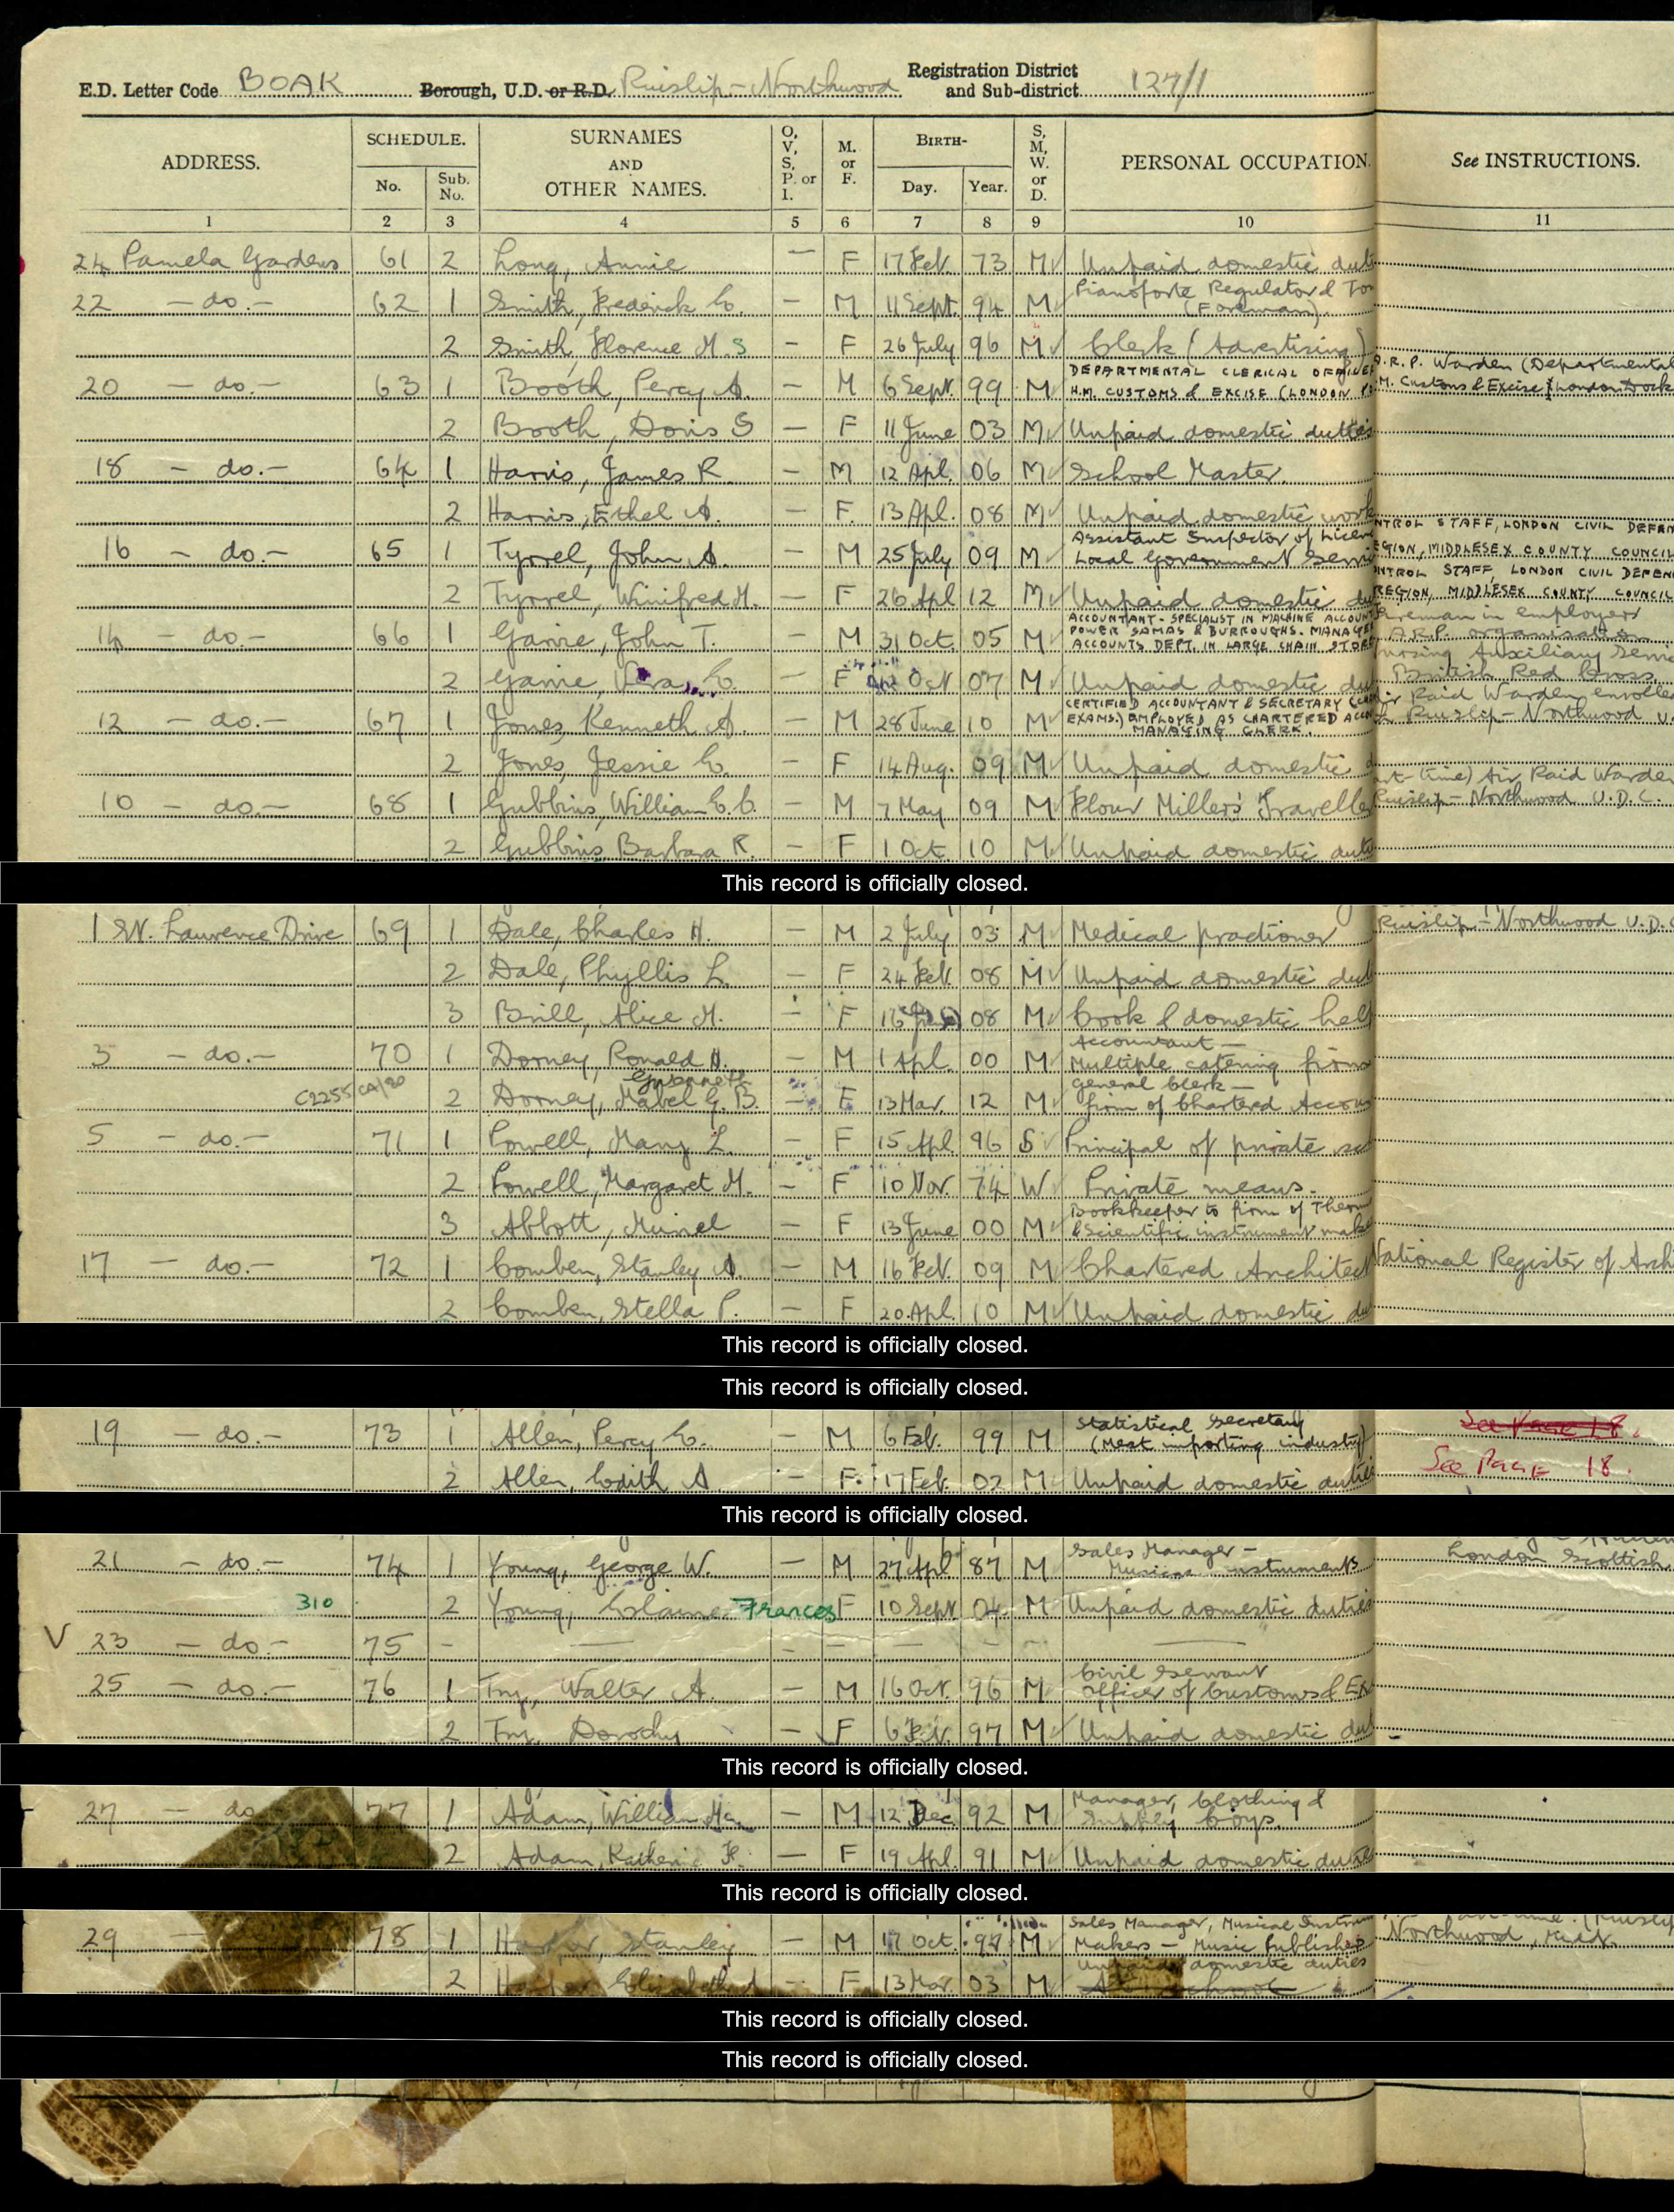 E.D. Letter Code BOAK Borough, U.D. or R.D. Ruislip-Northwood Registration District and Sub-district 127/1
ADDRESS. SCHEDULE. No. Sub. No. SURNAMES AND OTHER NAMES. O, V, S, P. or I. M. or F. BIRTH- Day. Year. S, M, W. or D. PERSONAL OCCUPATION. See INSTRUCTIONS.
1 2 3 4 5 6 7 8 9 10 11
24 Pamela Gardens 61 2 Long, Annie — F 17 Feb. 73 M Unpaid domestic dut
22 — do. — 62 1 Smith, Frederick E. — M 11 Sept. 94 M Pianoforte Regulator & To
(Foreman)
2 Smith, Florence M. S — F 26 July 96 M Clerk (Advertising)
20 — do. — 63 1 Booth, Percy A. — M 6 Sept. 99 M DEPARTMENTAL CLERICAL OFFICER A.R.P. Warden (Departmental
H.M. CUSTOMS & EXCISE (LONDON P .M. Customs & Excise London Dock
2 Booth, Doris S — F 11 June 03 M Unpaid domestic duties
18 — do. — 64 1 Harris, James R — M 12 Apl. 06 M School Master.
2 Harris, Ethel A. — F. 13 Apl. 08 M Unpaid domestic work
16 — do. — 65 1 Tyrrel, John A. — M 25 July 09 M Assistant Inspector of Licen NTROL STAFF, LONDON CIVIL DEFEN
Local Government Servi EGION, MIDDLESEX COUNTY COUNCIL
2 Tyrrel, Winifred M. — F 26 Apl 12 M Unpaid domestic du NTROL STAFF, LONDON CIVIL DEFEN
REGION, MIDDLESEX COUNTY COUNCIL
14 — do. — 66 1 Garvie, John T. — M 31 Oct. 05 M ACCOUNTANT - SPECIALIST IN MACHINE ACCOUN Fireman in employers
POWER SAMAS & BURROUGHS. MANAGER A.R.P. organisation
ACCOUNTS DEPT. IN LARGE CHAIN STORE
2 Garvie, Vera E. — F Oct 07 M Unpaid domestic du nursing Auxiliary Servi
British Red Cross
12 — do. — 67 1 Jones, Kenneth A. — M 28 June 10 M CERTIFIED ACCOUNTANT & SECRETARY ir Raid Warden enrolle
EXAMS.) EMPLOYED AS CHARTERED ACCO Ruislip-Northwood U.
MANAGING CLERK.
2 Jones, Jessie E. — F 14 Aug. 09 M Unpaid domestic d
10 — do. — 68 1 Gubbins, William E. C. — M 7 May 09 M Flour Millers' Travelle art-time) Air Raid Warden
Ruislip-Northwood U.D.C.
2 Gubbins, Barbara R. — F 1 Oct. 10 M Unpaid domestic dut
This record is officially closed.
1 St. Laurence Drive 69 1 Dale, Charles H. — M 2 July 03 M Medical practioner Ruislip-Northwood U.D.C
2 Dale, Phyllis L. — F 24 Feb. 08 M Unpaid domestic dut
3 Brill, Alice M. — F 16 08 M Cook & domestic help
3 — do. — 70 1 Dorney, Ronald H. — M 1 Apl. 00 M Accountant —
Multiple catering firm
C2255/CA/90 2 Dorney, Mabel G. B. — F 13 Mar. 12 M General Clerk —
firm of Chartered Accou
5 — do. — 71 1 Powell, Mary L. — F 15 Apl. 96 S Principal of private sc
2 Powell, Margaret M. — F 10 Nov. 74 W Private means.
3 Abbott, Muriel — F 13 June 00 M Bookkeeper to firm of Therm
& Scientific instrument make
17 — do. — 72 1 Comben, Stanley A. — M 16 Feb. 09 M Chartered Architect National Register of Archi
2 Comben, Stella P. — F 20 Apl. 10 M Unpaid domestic du
This record is officially closed.
This record is officially closed.
19 — do. — 73 1 Allen, Percy E. — M 6 Feb. 99 M Statistical Secretary See Page 18.
(Meat importing industry)
2 Allen, Edith A — F. 17 Feb. 02 M Unpaid domestic duties See PAGE 18.
This record is officially closed.
21 — do. — 74 1 Young, George W. — M 27 Apl 87 M Sales Manager — London Scottish
Musical instruments
310 2 Young, Elaine Frances F 10 Sept 04 M Unpaid domestic duties
V 23 — do — 75 - — - — — - — —
25 — do. — 76 1 Try, Walter A. — M 16 Oct. 96 M Civil Servant
Officer of Customs & Ex
2 Try, Dorothy — F 6 Feb. 97 M Unpaid domestic dut
This record is officially closed.
27 — do 77 1 Adam, William — M 12 Dec 92 M Manager, Clothing &
Supply Coys.
2 Adam, Katherine F. — F 19 Apl. 91 M Unpaid domestic duties
This record is officially closed.
29 — 78 1 Harper, Stanley — M 17 Oct. 97 M Sales Manager, Musical Instrum
Makers — Music Publishers Northwood, Middx.
2 Harper, Elizabeth — F 13 Mar. 03 M Unpaid domestic duties
This record is officially closed.
This record is officially closed.